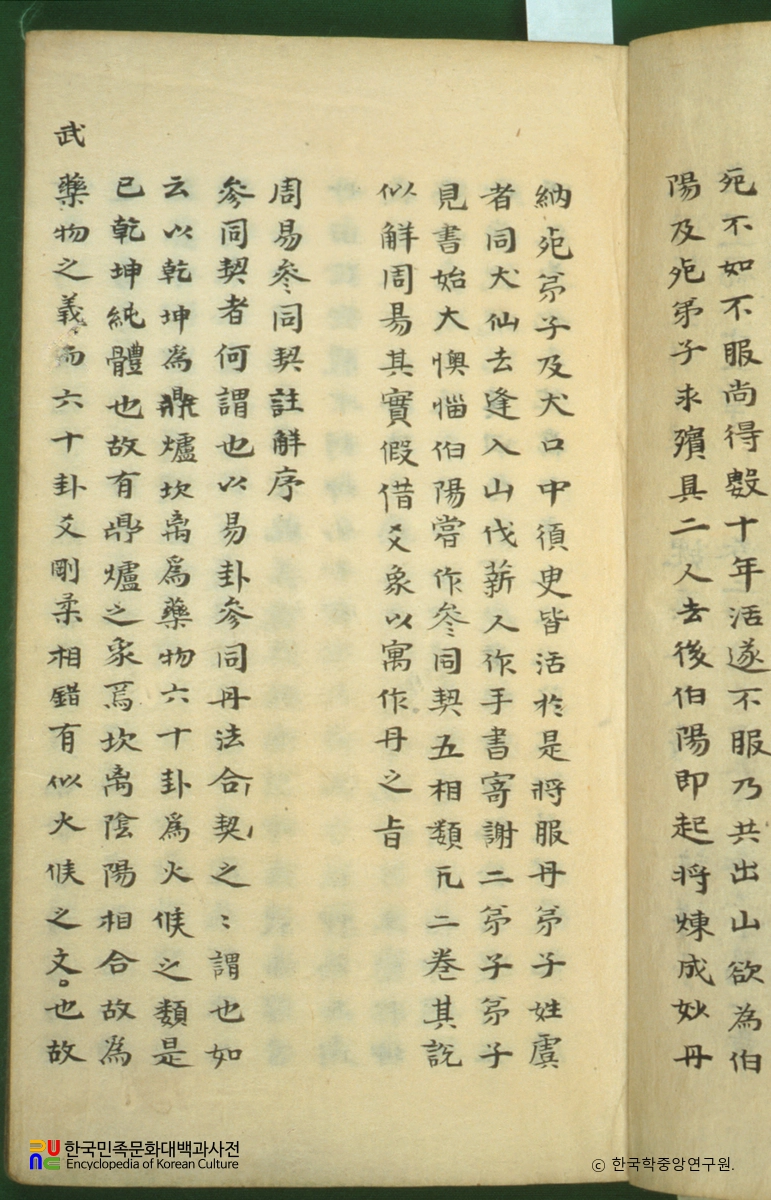 死不如不服尚得數十年活遂不服乃共出山欲為伯
陽及死弟子求殯具二人去後伯陽即起将煉成妙丹
納死弟子及犬口中須臾皆活於是将服丹弟子姓虞
者同犬仙去逢入山伐薪人作手書寄謝二弟子弟子
見書始大懊惱伯陽嘗作參同契五相類凡二卷其說
似觧周易其實假借爻象以寓作丹之㫖
周易參同契註觧序
參同契者何謂也以易卦參同丹法合契之〻謂也如
云以乾坤為鼎爐坎离為藥物六十卦為火候之類是
已乾坤純體也故有鼎爐之象焉坎离陰陽相合故為
藥物之義而六十卦爻剛柔相錯有似火候之文也故
武
한국민족문화대백과사전
Encyclopedia of Korean Culture
© 한국학중앙연구원.